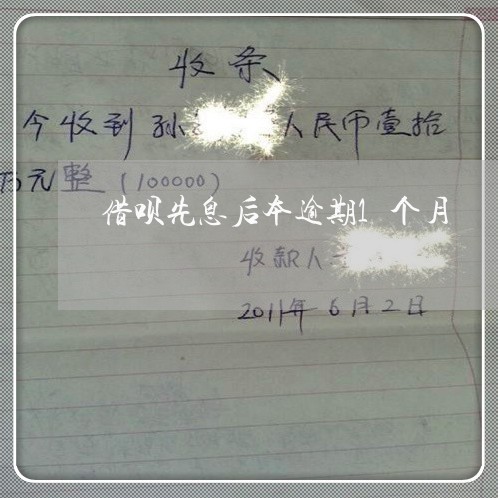 收条
今收到孙 人民币壹拾
万元整(100000)
借呗先息后本逾期1个月
收款人
2011年6月2日